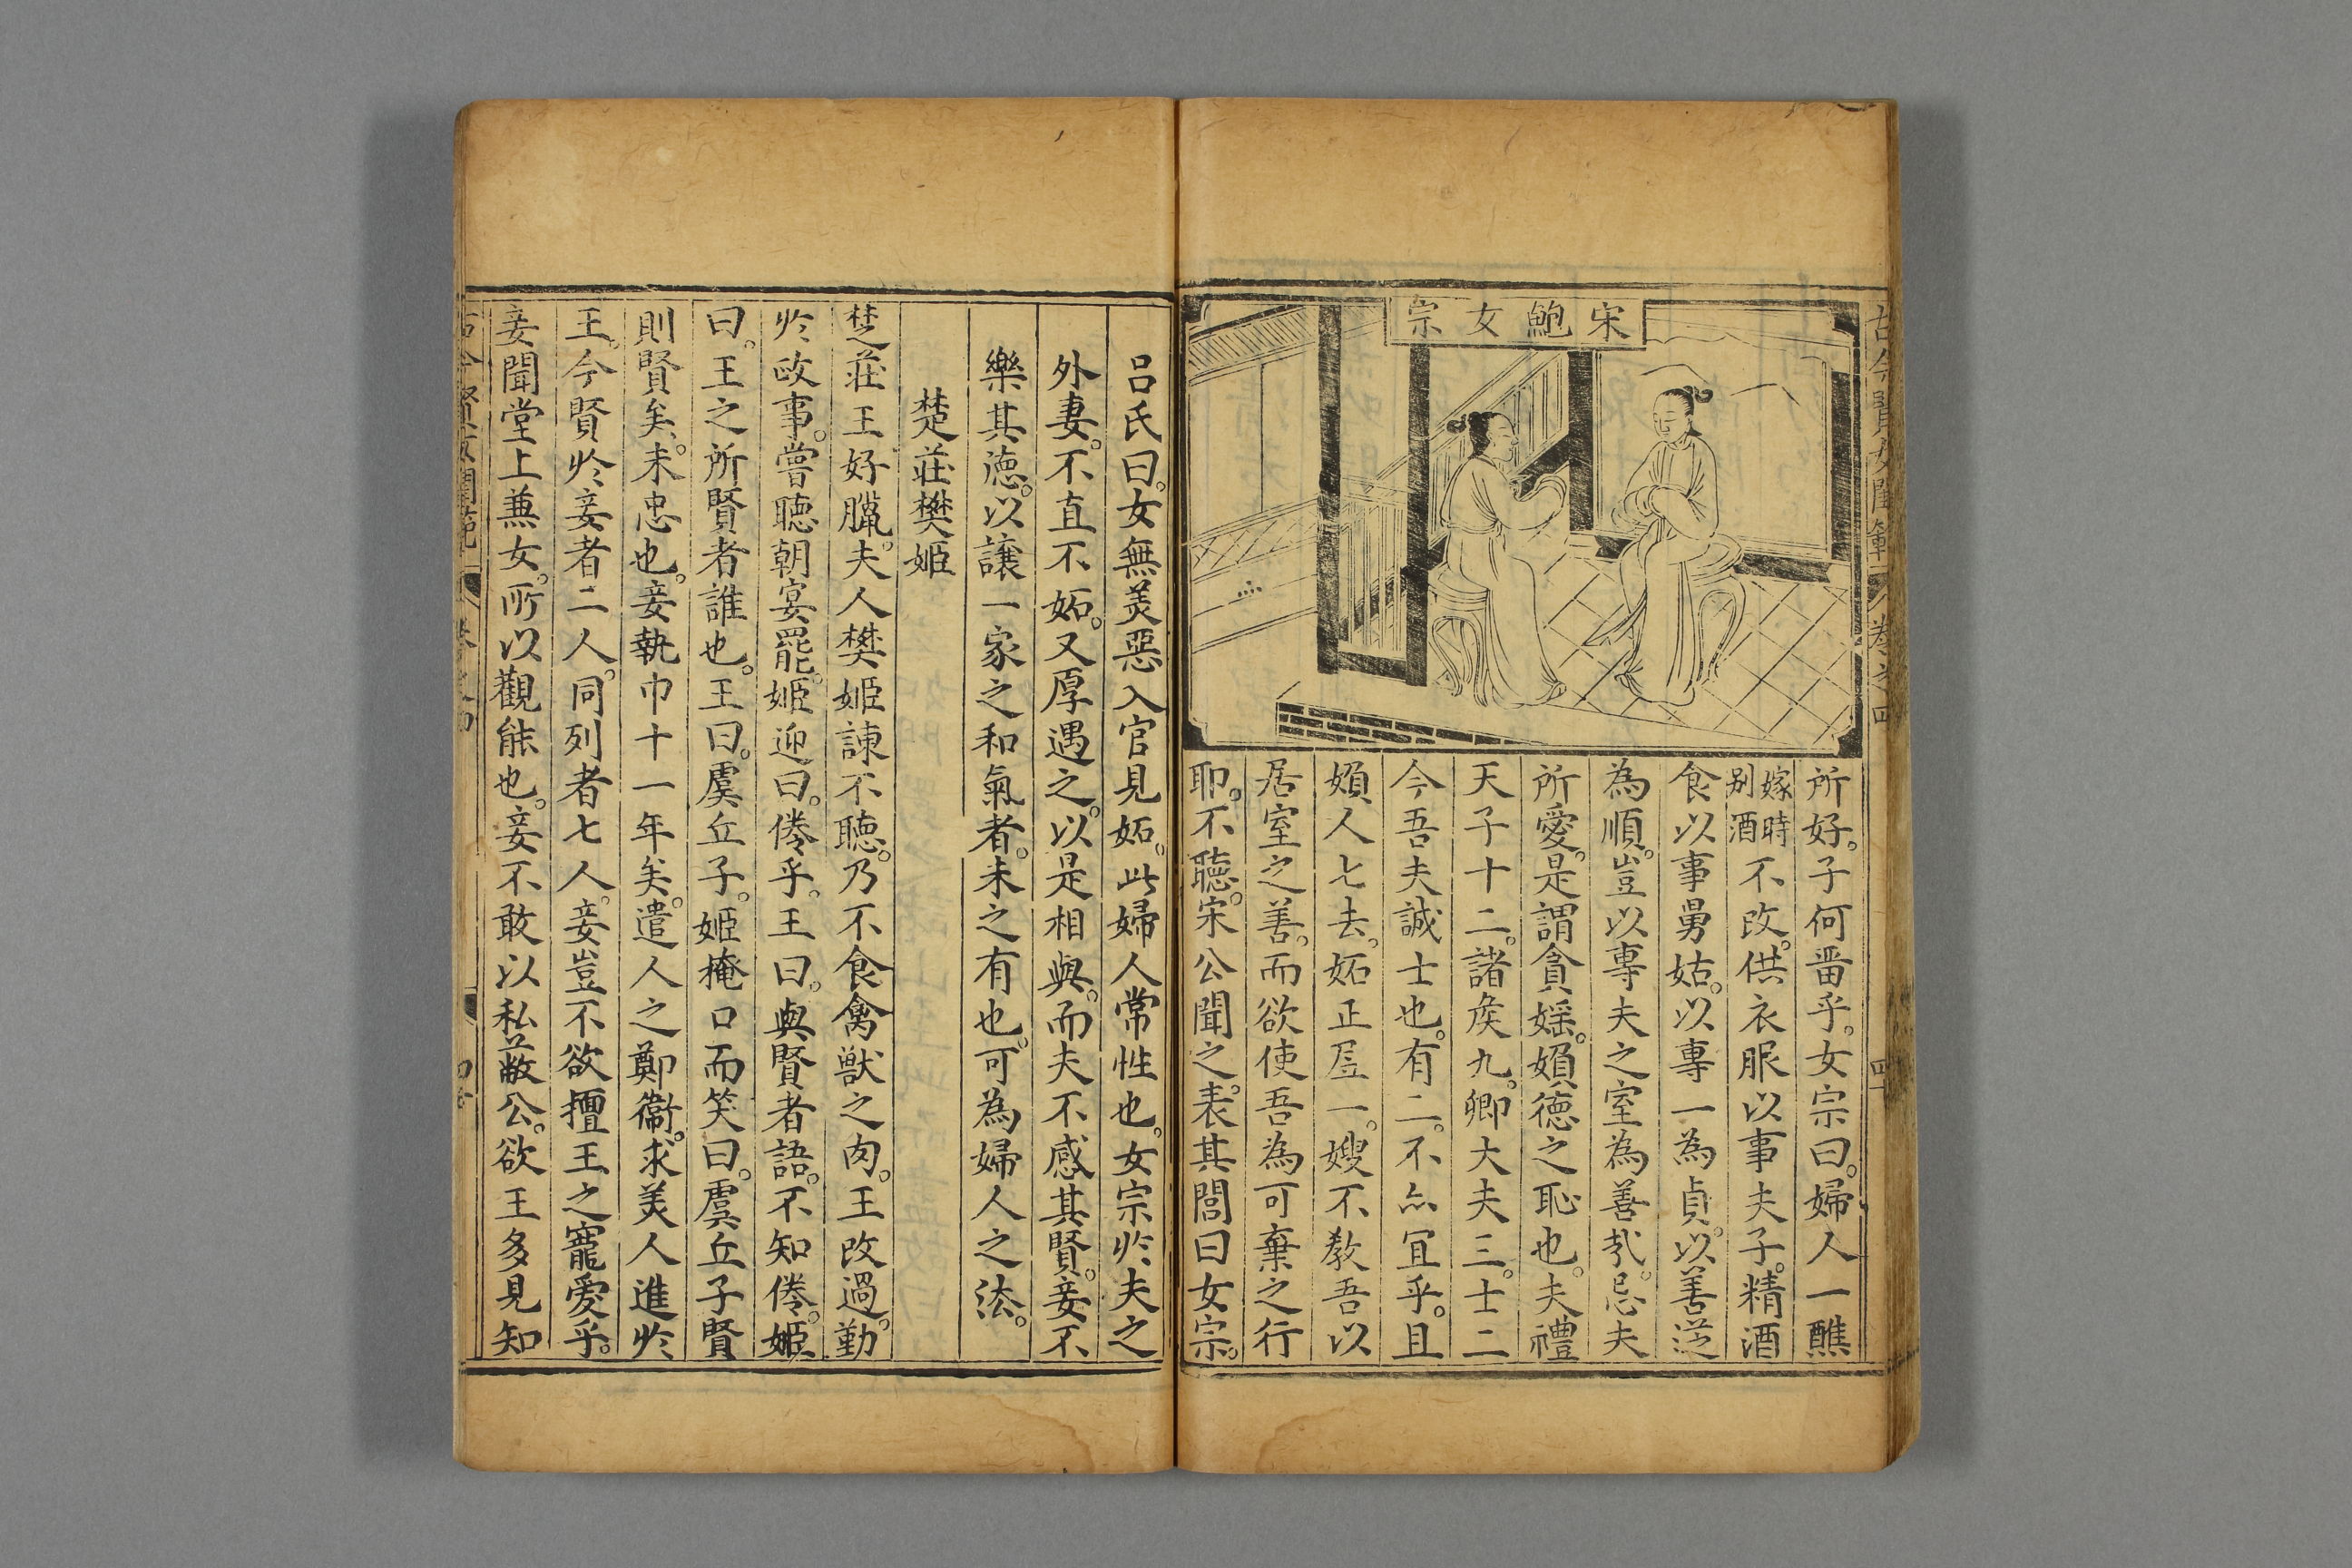 古今賢女閨範 卷之四 四十
宋鮑女宗
所好。子何畱乎。女宗曰。婦人一醮
嫁時别酒不改。供衣服以事夫子。精酒
食以事舅姑。以專一為貞。以善從
為順。豈以專夫之室為善㢤。忌夫
所愛。是謂貪婬。嬪德之恥也。夫禮
天子十二。諸矦九。卿大夫三。士二
今吾夫誠士也。有二。不亦冝乎。且
嬪人七去。妬正居一。嫂不教吾以
居室之善。而欲使吾為可棄之行
耶。不聽。宋公聞之。表其閭曰女宗。
呂氏曰。女無美惡入官見妬。此婦人常性也。女宗於夫之
外妻。不直不妬。又厚遇之。以是相與。而夫不感其賢。妾不
樂其德。以讓一家之和氣者。未之有也。可為婦人之法。
楚莊樊姬
楚莊王好臘。夫人樊姬諫不聽。乃不食禽獸之肉。王改過。勤
於政事。嘗聽朝宴罷。姬迎曰。倦乎。王曰。與賢者語。不知倦。姬
曰。王之所賢者誰也。王曰。虞丘子。姬掩口而笑曰。虞丘子賢
則賢矣。未忠也。妾執巾十一年矣。遣人之鄭衞。求美人進於
王。今賢於妾者二人。同列者七人。妾豈不欲擅王之寵愛乎。
妾聞堂上兼女。所以觀能也。妾不敢以私蔽公。欲王多見知
古今賢女閨範 卷之四